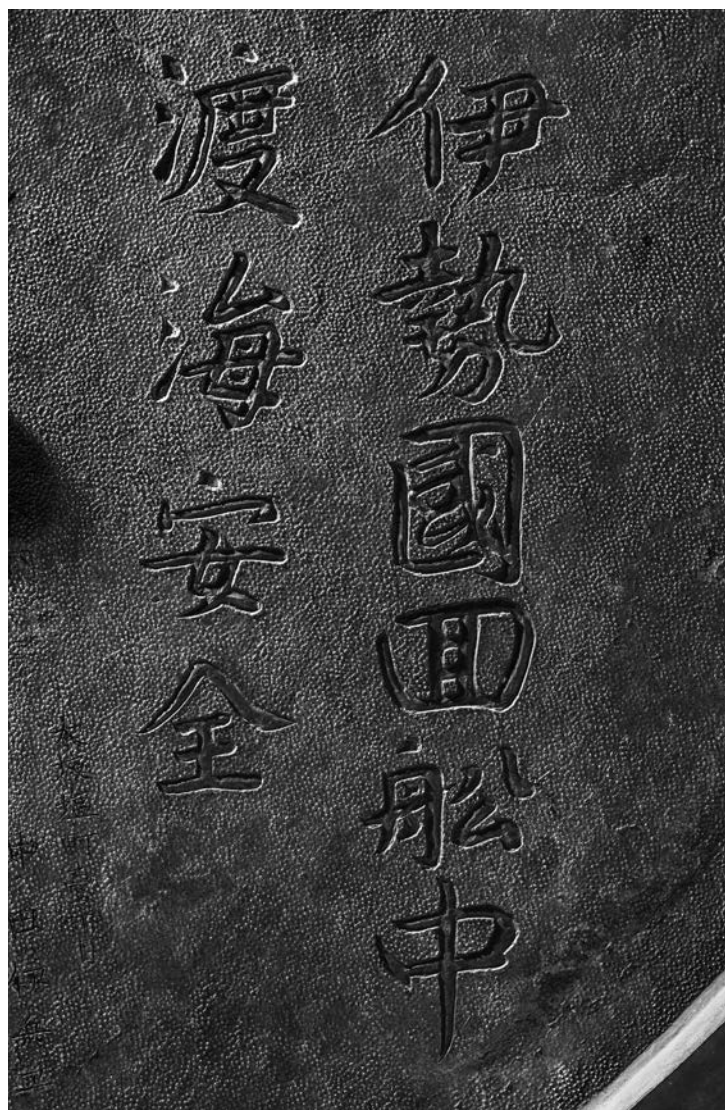 伊勢國囬舩中
渡海安全